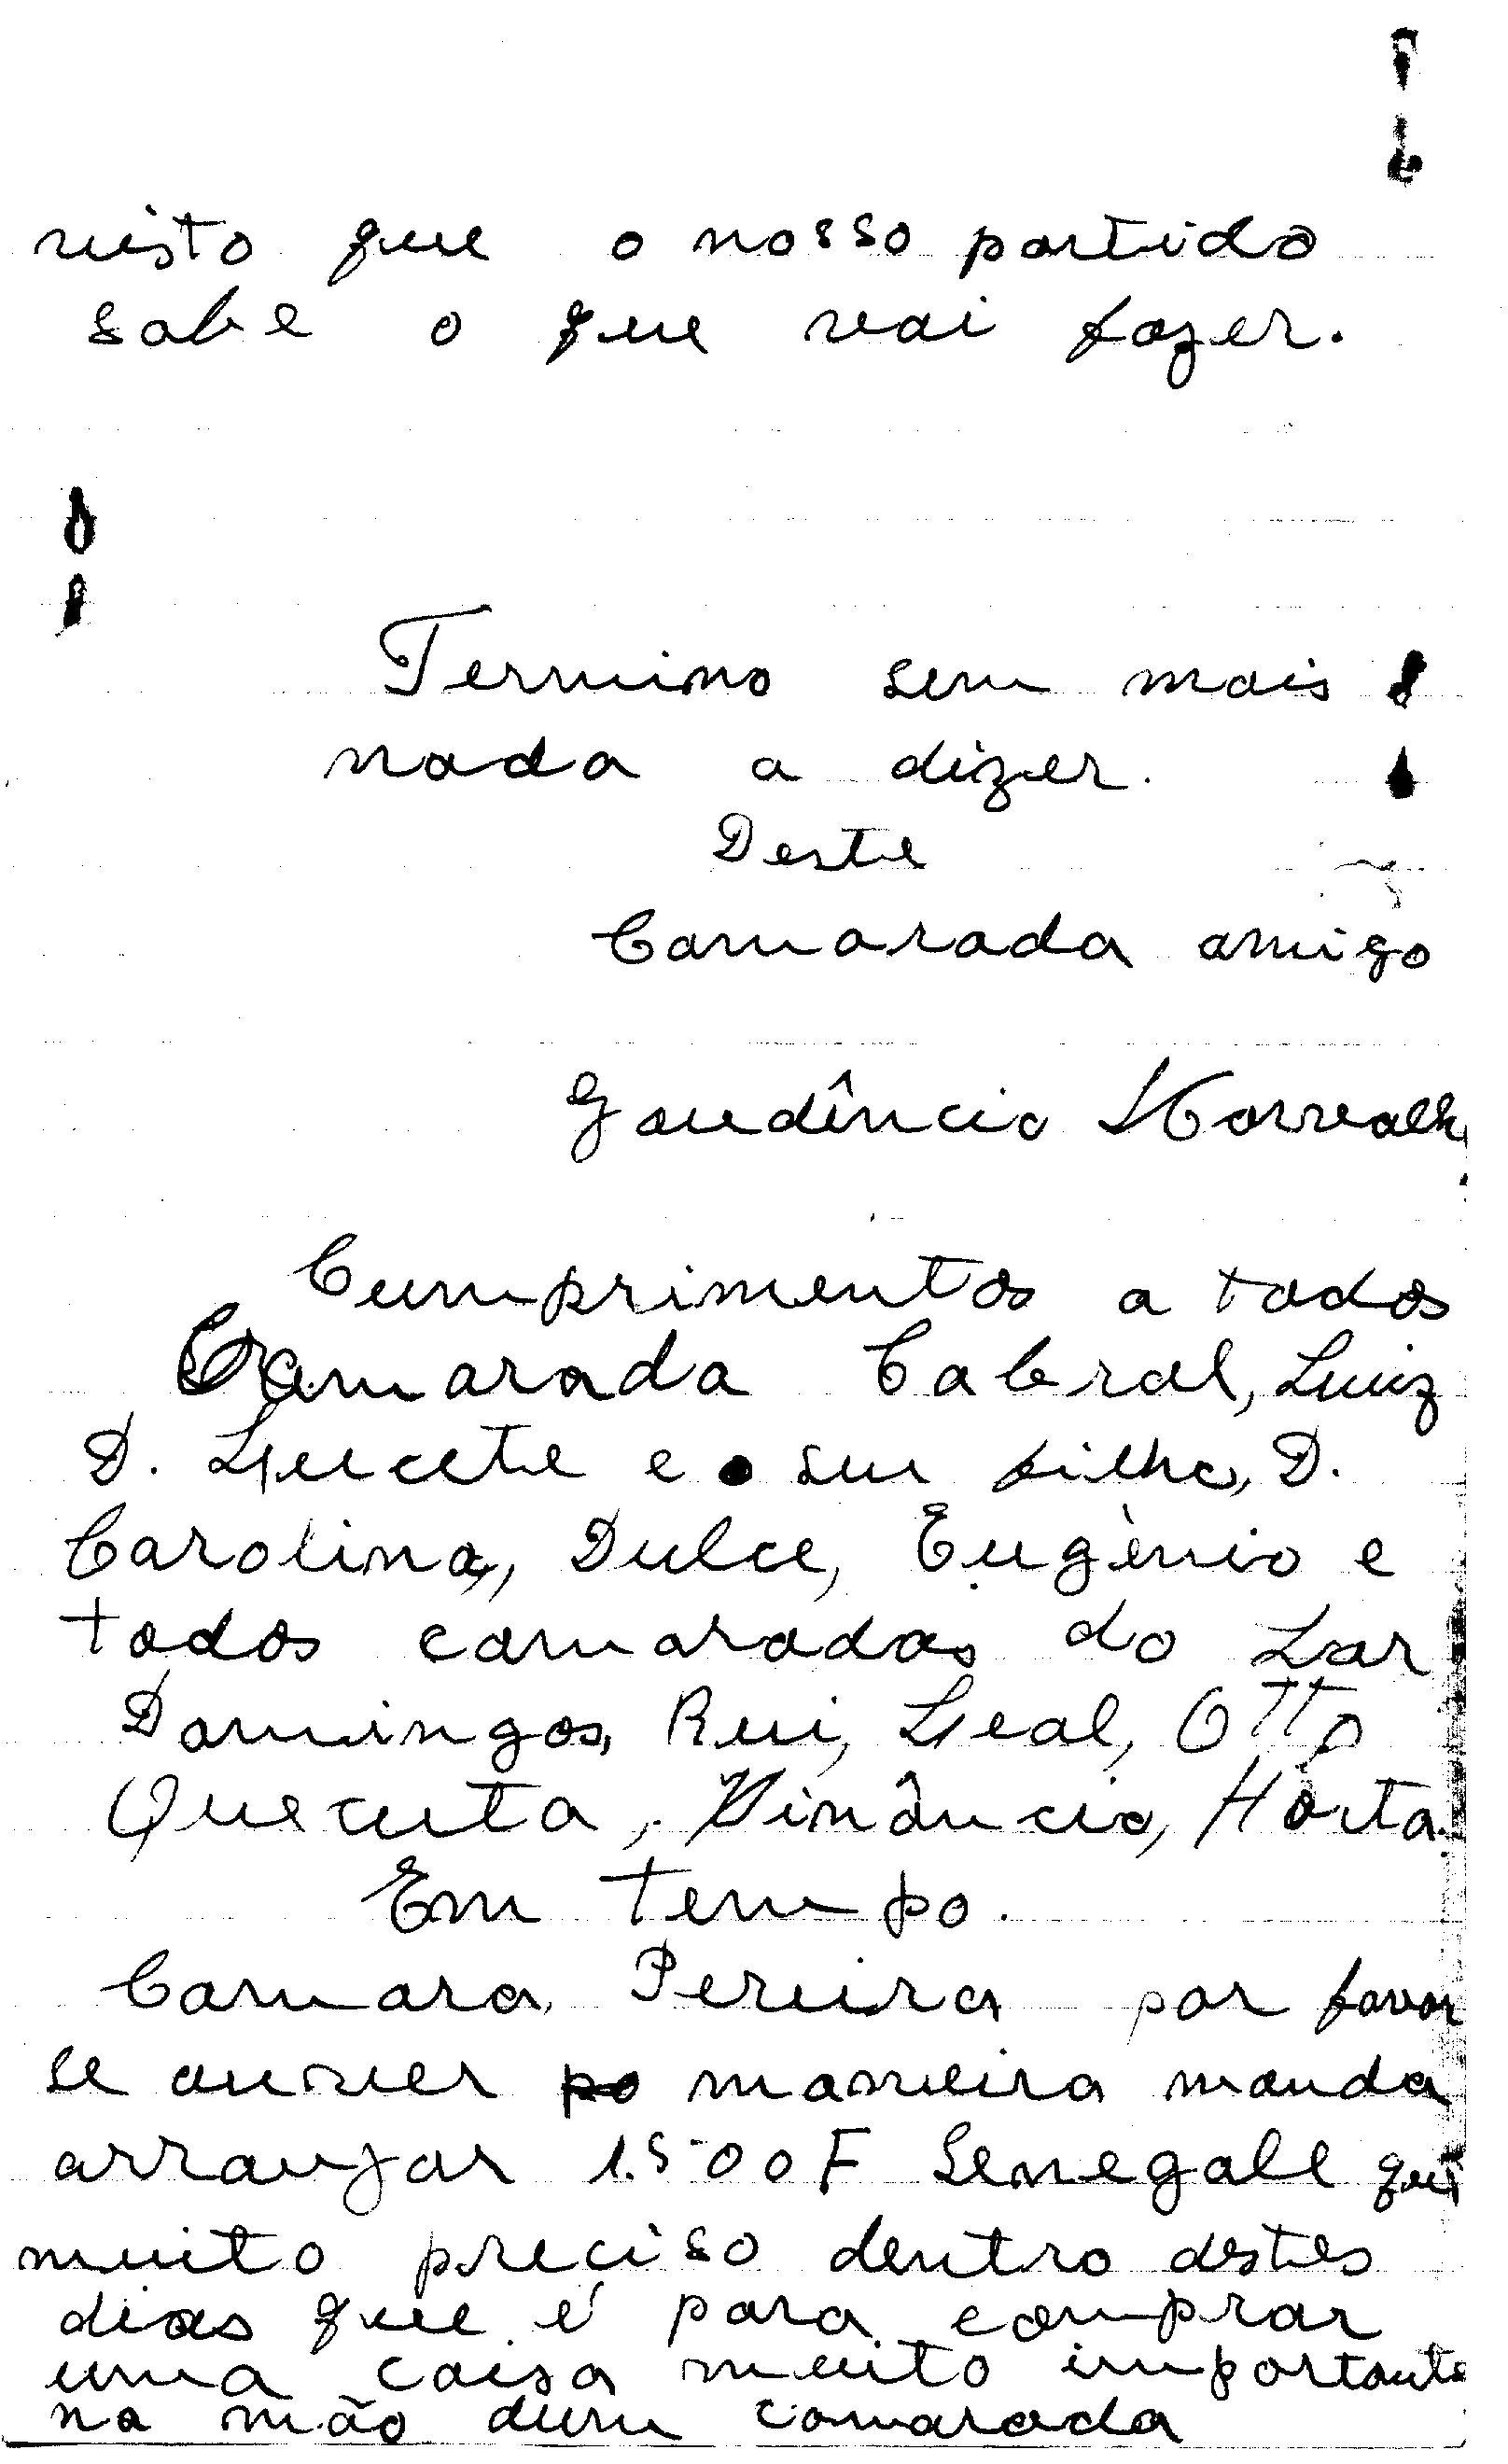 visto que o nosso partido
sabe o que vai fazer.
Termino sem mais
nada a dizer.
Deste
Camarada amigo
Gaudêncio
Cumprimentos a todos
Camarada Cabral, Luiz
D. Lucete e o seu filho, D.
Carolina, Dulce, Eugènio e
todos camaradas do Lar
Domingos, Rui, Leal, Otto
Quecuta, Vinâncio, Horta.
Em tempo.
Camara Pereira por favor
se ouver maneira manda
arranjar 1.500F Senegale que
muito preciso dentro destes
dias que é para comprar
uma coisa muito importante
na mão dum camarada